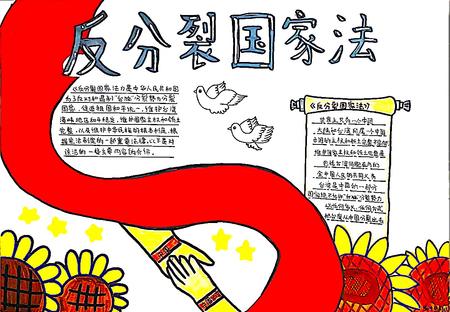 反分裂国家法
《反分裂国家法》是中华人民共和国
为了反对和遏制"台独"分裂势力分裂
国家，促进祖国和平统一，维护台湾
海峡地区和平稳定，维护国家主权和领土
完整，以及维护中华民族的根本利益，根
据宪法制定的一部重要法律，以下是对
该法的一些主要内容的介绍。
《反分裂国家法》
世界上只有一个中国
大陆和台湾同属一个中国
中国的主权和领土完整不容分割
维护国家主权和领土完整是
包括台湾同胞在内的
全中国人民的共同义务
台湾是中国的一部分
国家绝不允许"台独"分裂势力
以任何名义、任何方式
把台湾从中国分裂出去